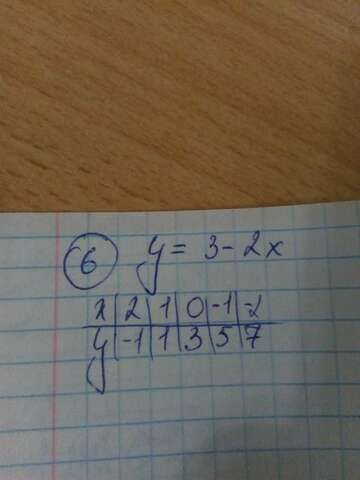 6 y = 3 - 2x
x | 2 | 1 | 0 | -1 | -2
y | -1 | 1 | 3 | 5 | 7